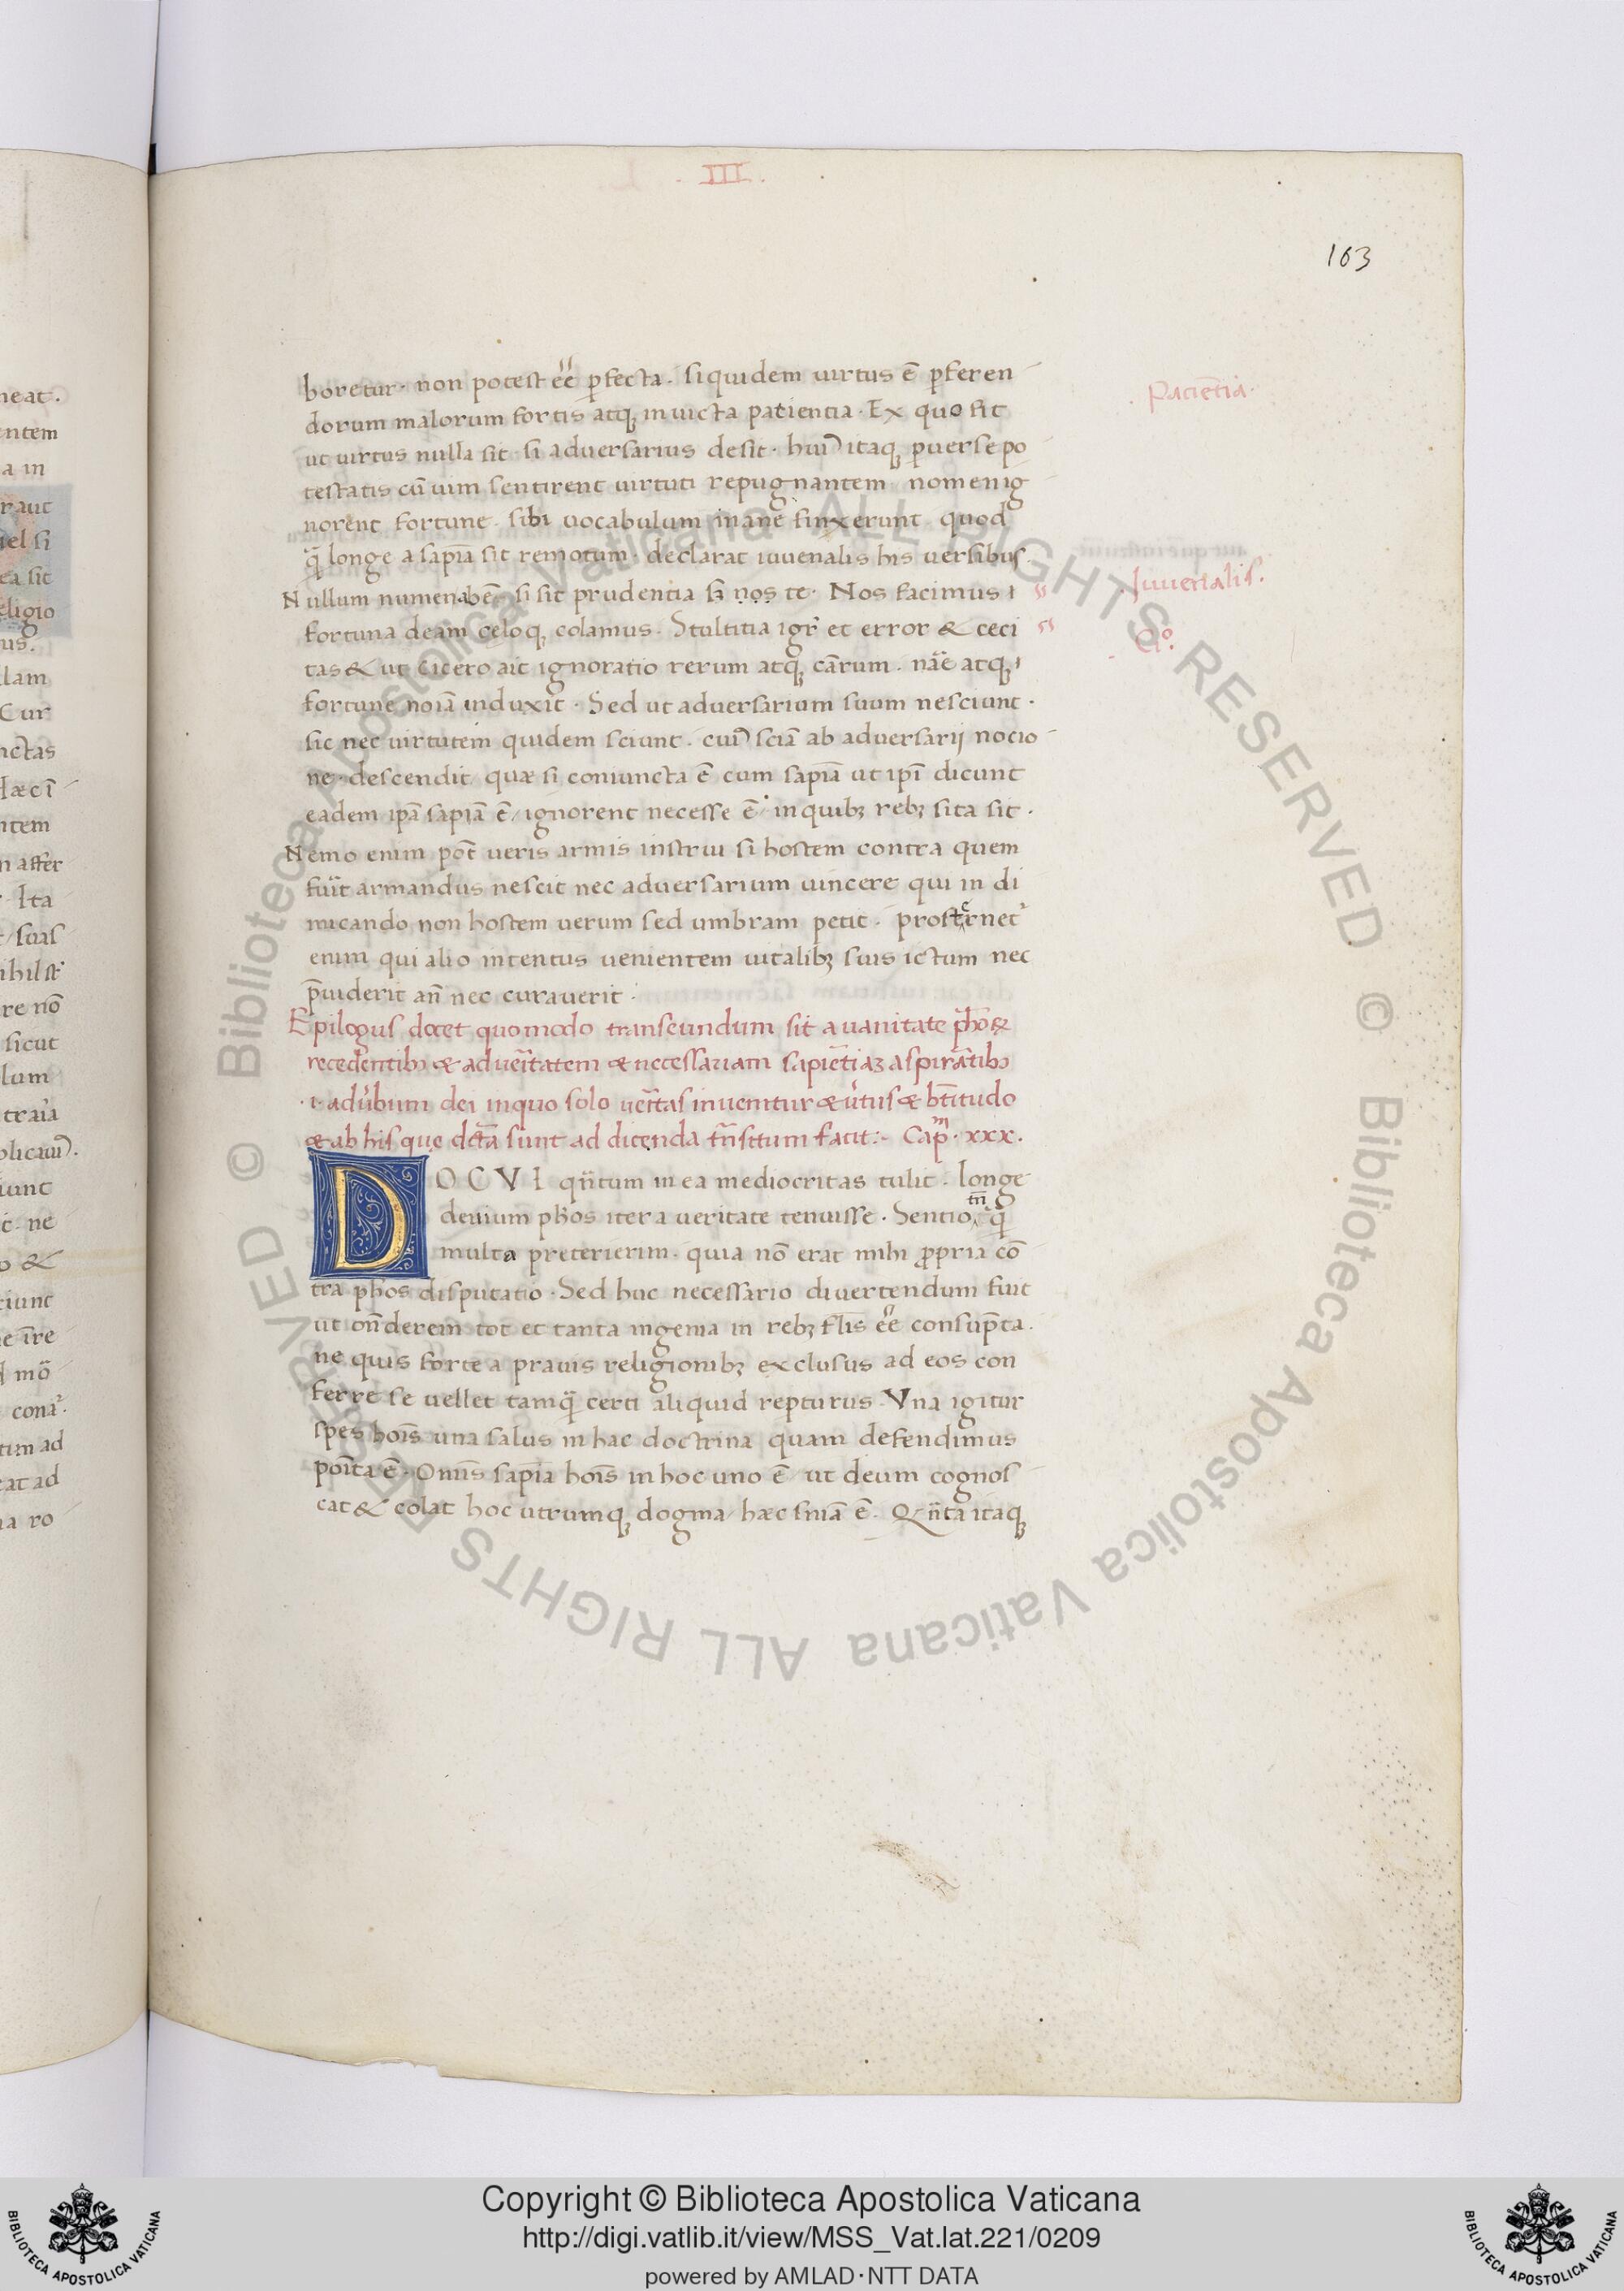 . III .
163
boretur · non potest eé̄ ꝑfecta . siquidem uirtus ē ꝑferen
dorum malorum fortis atqꝫ inuicta patientia · Ex quo fit
ut uirtus nulla sit · si aduersarius desit · huiꝰ itaqꝫ ꝑuerse po
testatis cū uim sentirent uirtuti repugnantem nomen ig
norent fortune . sibi uocabulum inane finxerunt quod
q̄ longe a sapīa sit remotum · declarat iuuenalis his uersibus .
Nullum numen abē si sit prudentia sꝫ nos te · Nos facimus
fortuna deam celoqꝫ colamus . Stultitia igr̄ et error & ceci
tas & ut cicero ait ignoratio rerum atqꝫ cārum . nāe atqꝫ
fortune noīa induxit · Sed ut aduersarium suum nesciunt ·
sic nec uirtutem quidem sciunt . cuiꝰ sciā ab aduersarij nocio
ne · descendit quæ si coniuncta ē cum sapīa ut ip̄i dicunt
eadem ip̄a sapīa ē / ignorent necesse ē in quibꝫ rebꝫ sita sit ·
Nemo enim pot̄ ueris armis instrui si hostem contra quem
fuit armandus nescit nec aduersarium uincere qui in di
micando non hostem uerum sed umbram petit · prosternet
enim qui alio intentus uenientem uitalibꝫ suis ictum nec
p̄uiderit an̄ nec curauerit ·
Epilogus docet quomodo transeundum sit a uanitate ph̄oꝝ
recedentibꝰ & ad ueritatem & necessariam sapiētiaꝫ aspirātibꝰ
· i · ad u̇bum dei in quo solo uer̄tas inuenitur & u̇tus & bt̄itudo
& ab his que dc̄ta sunt ad dicenda tr̄nsitum facit :- Cap̄m · xxx .
DOCVI qn̄tum mea mediocritas tulit . longe
deuium ph̄os iter a ueritate tenuisse . Sentio tn̄ q̄
multa preterierim · quia nō erat mihi ꝓpria cō
tra ph̄os disputatio · Sed huc necessario diuertendum fuit
ut on̄derem tot et tanta ingenia in rebꝫ fl̄is eē consūpta .
ne quis forte a prauis religionibꝫ exclusus ad eos con
ferre se uellet tamq̄ certi aliquid repturus . Vna igitur
spes hoīs una salus in hac doctrina quam defendimus
poīta ē . Omīs sapīa hoīs in hoc uno ē ut deum cognos
cat & colat hoc utrumqꝫ dogma / hæc sn̄ia ē . Qn̄ta itaqꝫ
Paciētia .
Iuuenalis .
Ciº .
Copyright © Biblioteca Apostolica Vaticana
http://digi.vatlib.it/view/MSS_Vat.lat.221/0209
powered by AMLAD·NTT DATA
BIBLIOTECA APOSTOLICA VATICANA
BIBLIOTECA APOSTOLICA VATICANA
© Biblioteca Apostolica Vaticana ALL RIGHTS RESERVED
© Biblioteca Apostolica Vaticana ALL RIGHTS RESERVED